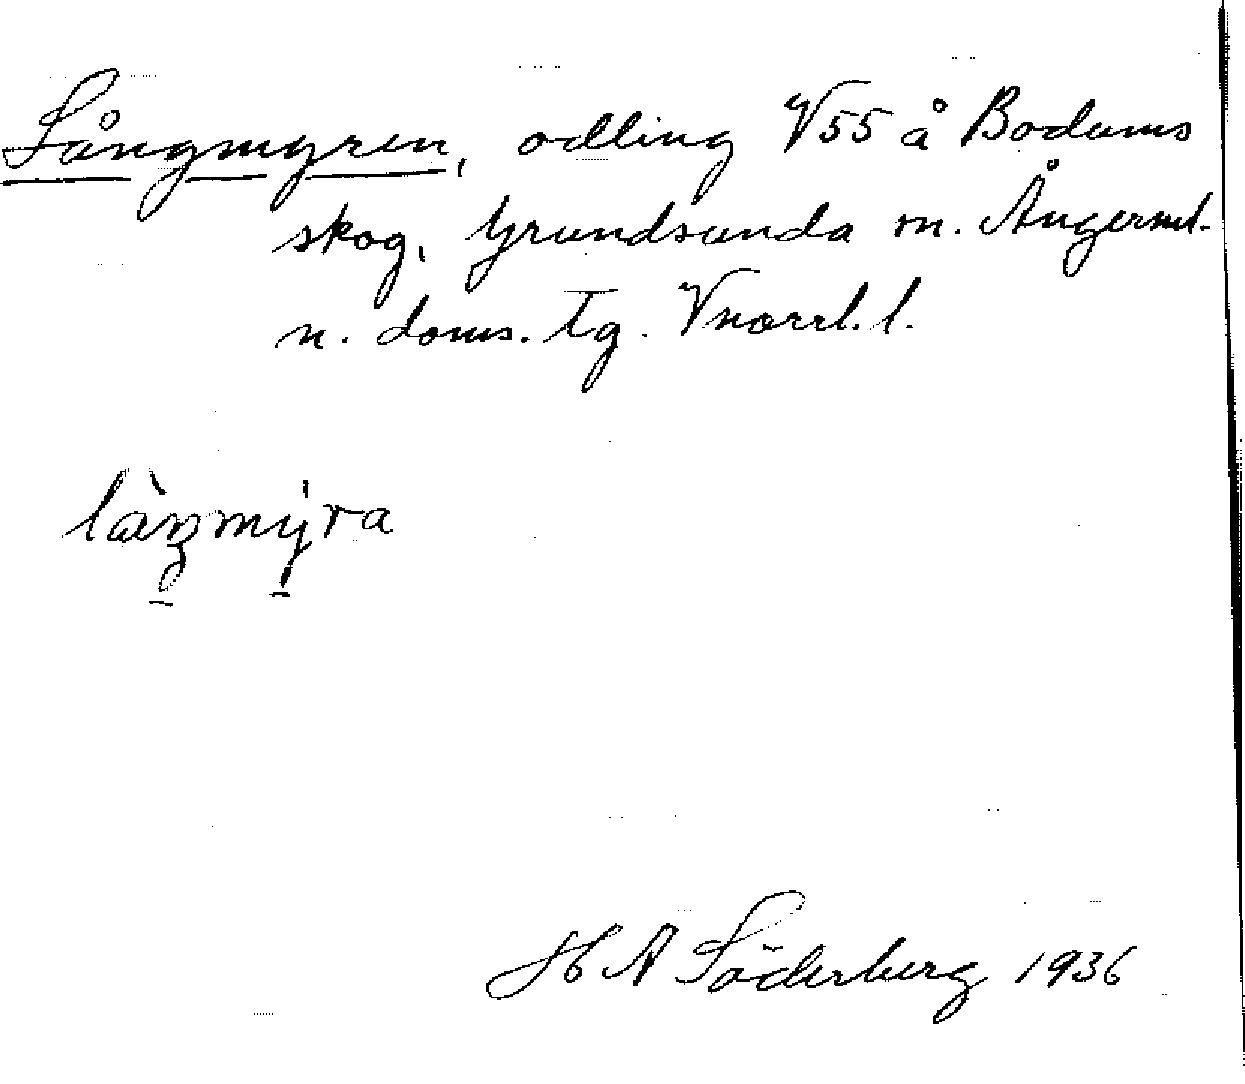 Långmyren, odling V55 å Bodums
skog, Grundsunda sn. Ångerml.
n. doms. tg. Vnorrl. l.
làŋmýra
H A Söderberg 1936